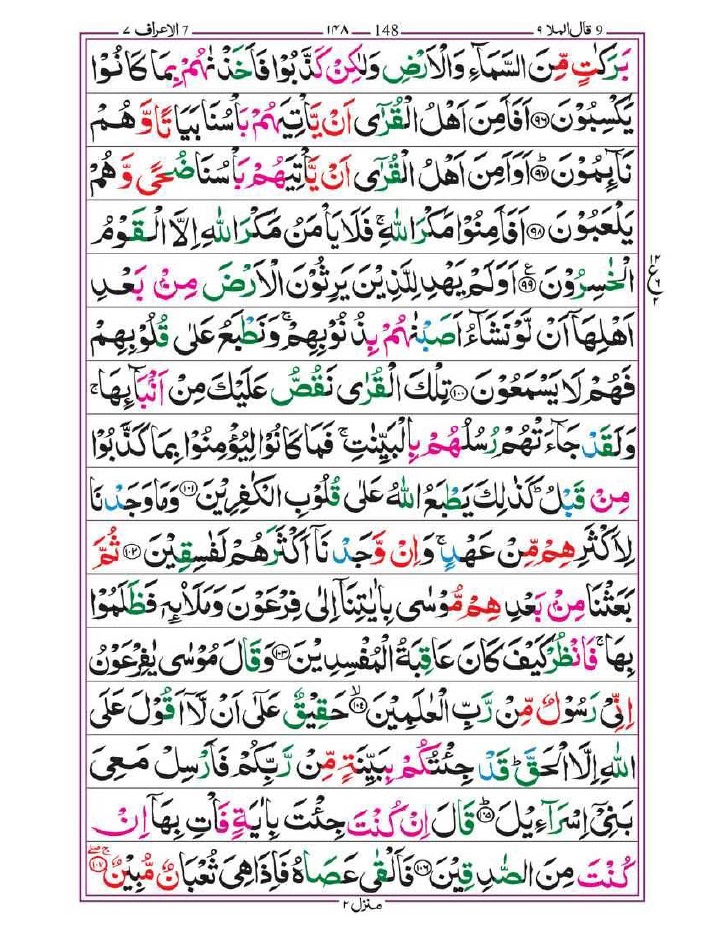 9 قال الملا ۹ 148 ۱۴۸ 7 الاعراف ۷
بَرَكٰتٍ مِّنَ السَّمَآءِ وَالْاَرْضِ وَلٰكِنْ كَذَّبُوْا فَاَخَذْنٰهُمْ بِمَا كَانُوْا
يَكْسِبُوْنَ ۹۶ اَفَاَمِنَ اَهْلُ الْقُرٰٓى اَنْ يَّاْتِيَهُمْ بَاْسُنَا بَيَاتًا وَّهُمْ
نَآئِمُوْنَ ۹۷ؕ اَوَاَمِنَ اَهْلُ الْقُرٰٓى اَنْ يَّاْتِيَهُمْ بَاْسُنَا ضُحًى وَّهُمْ
يَلْعَبُوْنَ ۹۸ اَفَاَمِنُوْا مَكْرَ اللّٰهِ ۚ فَلَا يَاْمَنُ مَكْرَ اللّٰهِ اِلَّا الْقَوْمُ
الْخٰسِرُوْنَ ۹۹ۧ اَوَلَمْ يَهْدِ لِلَّذِيْنَ يَرِثُوْنَ الْاَرْضَ مِنْۢ بَعْدِ
اَهْلِهَاۤ اَنْ لَّوْ نَشَآءُ اَصَبْنٰهُمْ بِذُنُوْبِهِمْ ۚ وَنَطْبَعُ عَلٰى قُلُوْبِهِمْ
فَهُمْ لَا يَسْمَعُوْنَ ۱۰۰ تِلْكَ الْقُرٰى نَقُصُّ عَلَيْكَ مِنْ اَنْۢبَآئِهَا ۚ
وَلَقَدْ جَآءَتْهُمْ رُسُلُهُمْ بِالْبَيِّنٰتِ ۚ فَمَا كَانُوْا لِيُؤْمِنُوْا بِمَا كَذَّبُوْا
مِنْ قَبْلُ ؕ كَذٰلِكَ يَطْبَعُ اللّٰهُ عَلٰى قُلُوْبِ الْكٰفِرِيْنَ ۱۰۱ وَمَا وَجَدْنَا
لِاَكْثَرِهِمْ مِّنْ عَهْدٍ ۚ وَاِنْ وَّجَدْنَاۤ اَكْثَرَهُمْ لَفٰسِقِيْنَ ۱۰۲ ثُمَّ
بَعَثْنَا مِنْۢ بَعْدِهِمْ مُّوْسٰى بِاٰيٰتِنَاۤ اِلٰى فِرْعَوْنَ وَمَلَا۟ئِهٖ فَظَلَمُوْا
بِهَا ۚ فَانْظُرْ كَيْفَ كَانَ عَاقِبَةُ الْمُفْسِدِيْنَ ۱۰۳ وَقَالَ مُوْسٰى يٰفِرْعَوْنُ
اِنِّىْ رَسُوْلٌ مِّنْ رَّبِّ الْعٰلَمِيْنَ ۱۰۴ۙ حَقِيْقٌ عَلٰٓى اَنْ لَّاۤ اَقُوْلَ عَلَى
اللّٰهِ اِلَّا الْحَقَّ ؕ قَدْ جِئْتُكُمْ بِبَيِّنَةٍ مِّنْ رَّبِّكُمْ فَاَرْسِلْ مَعِىَ
بَنِىْۤ اِسْرَآءِيْلَ ۱۰۵ؕ قَالَ اِنْ كُنْتَ جِئْتَ بِاٰيَةٍ فَاْتِ بِهَاۤ اِنْ
كُنْتَ مِنَ الصّٰدِقِيْنَ ۱۰۶ فَاَلْقٰى عَصَاهُ فَاِذَا هِىَ ثُعْبَانٌ مُّبِيْنٌ ۱۰۷
منزل ۲